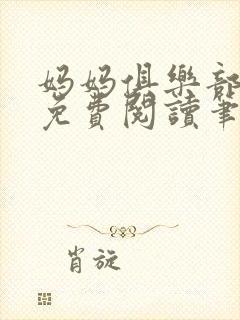 妈妈俱樂部
免費閱讀筆
肖旋